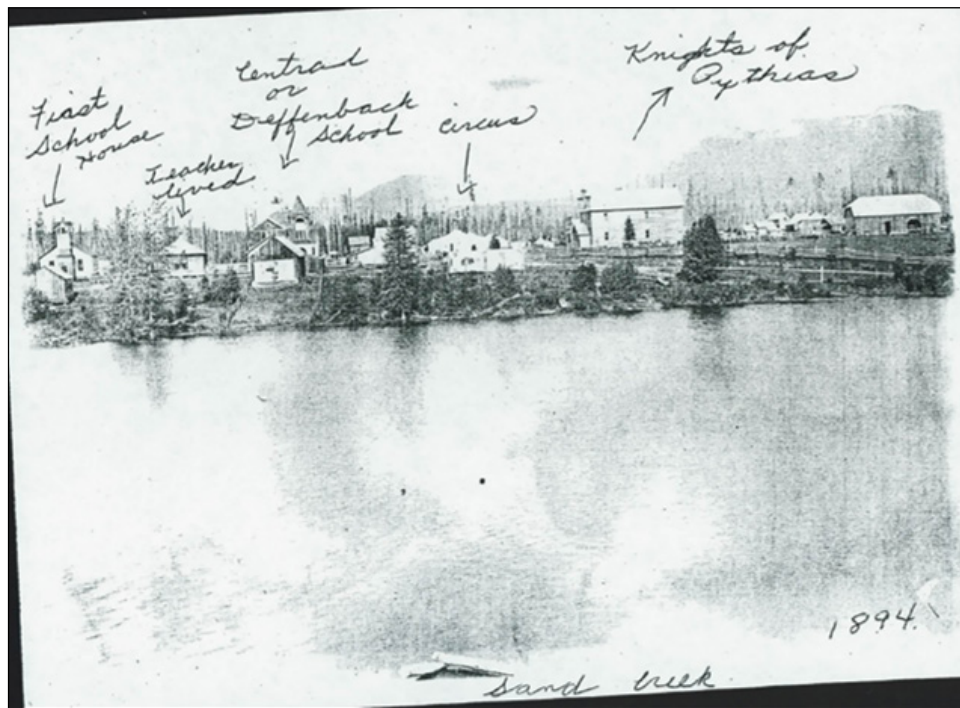 First
School
House
Teacher
lived
Central
or
Deffenback
School
circus
Knights of
Pythias
1894.
Sand Creek